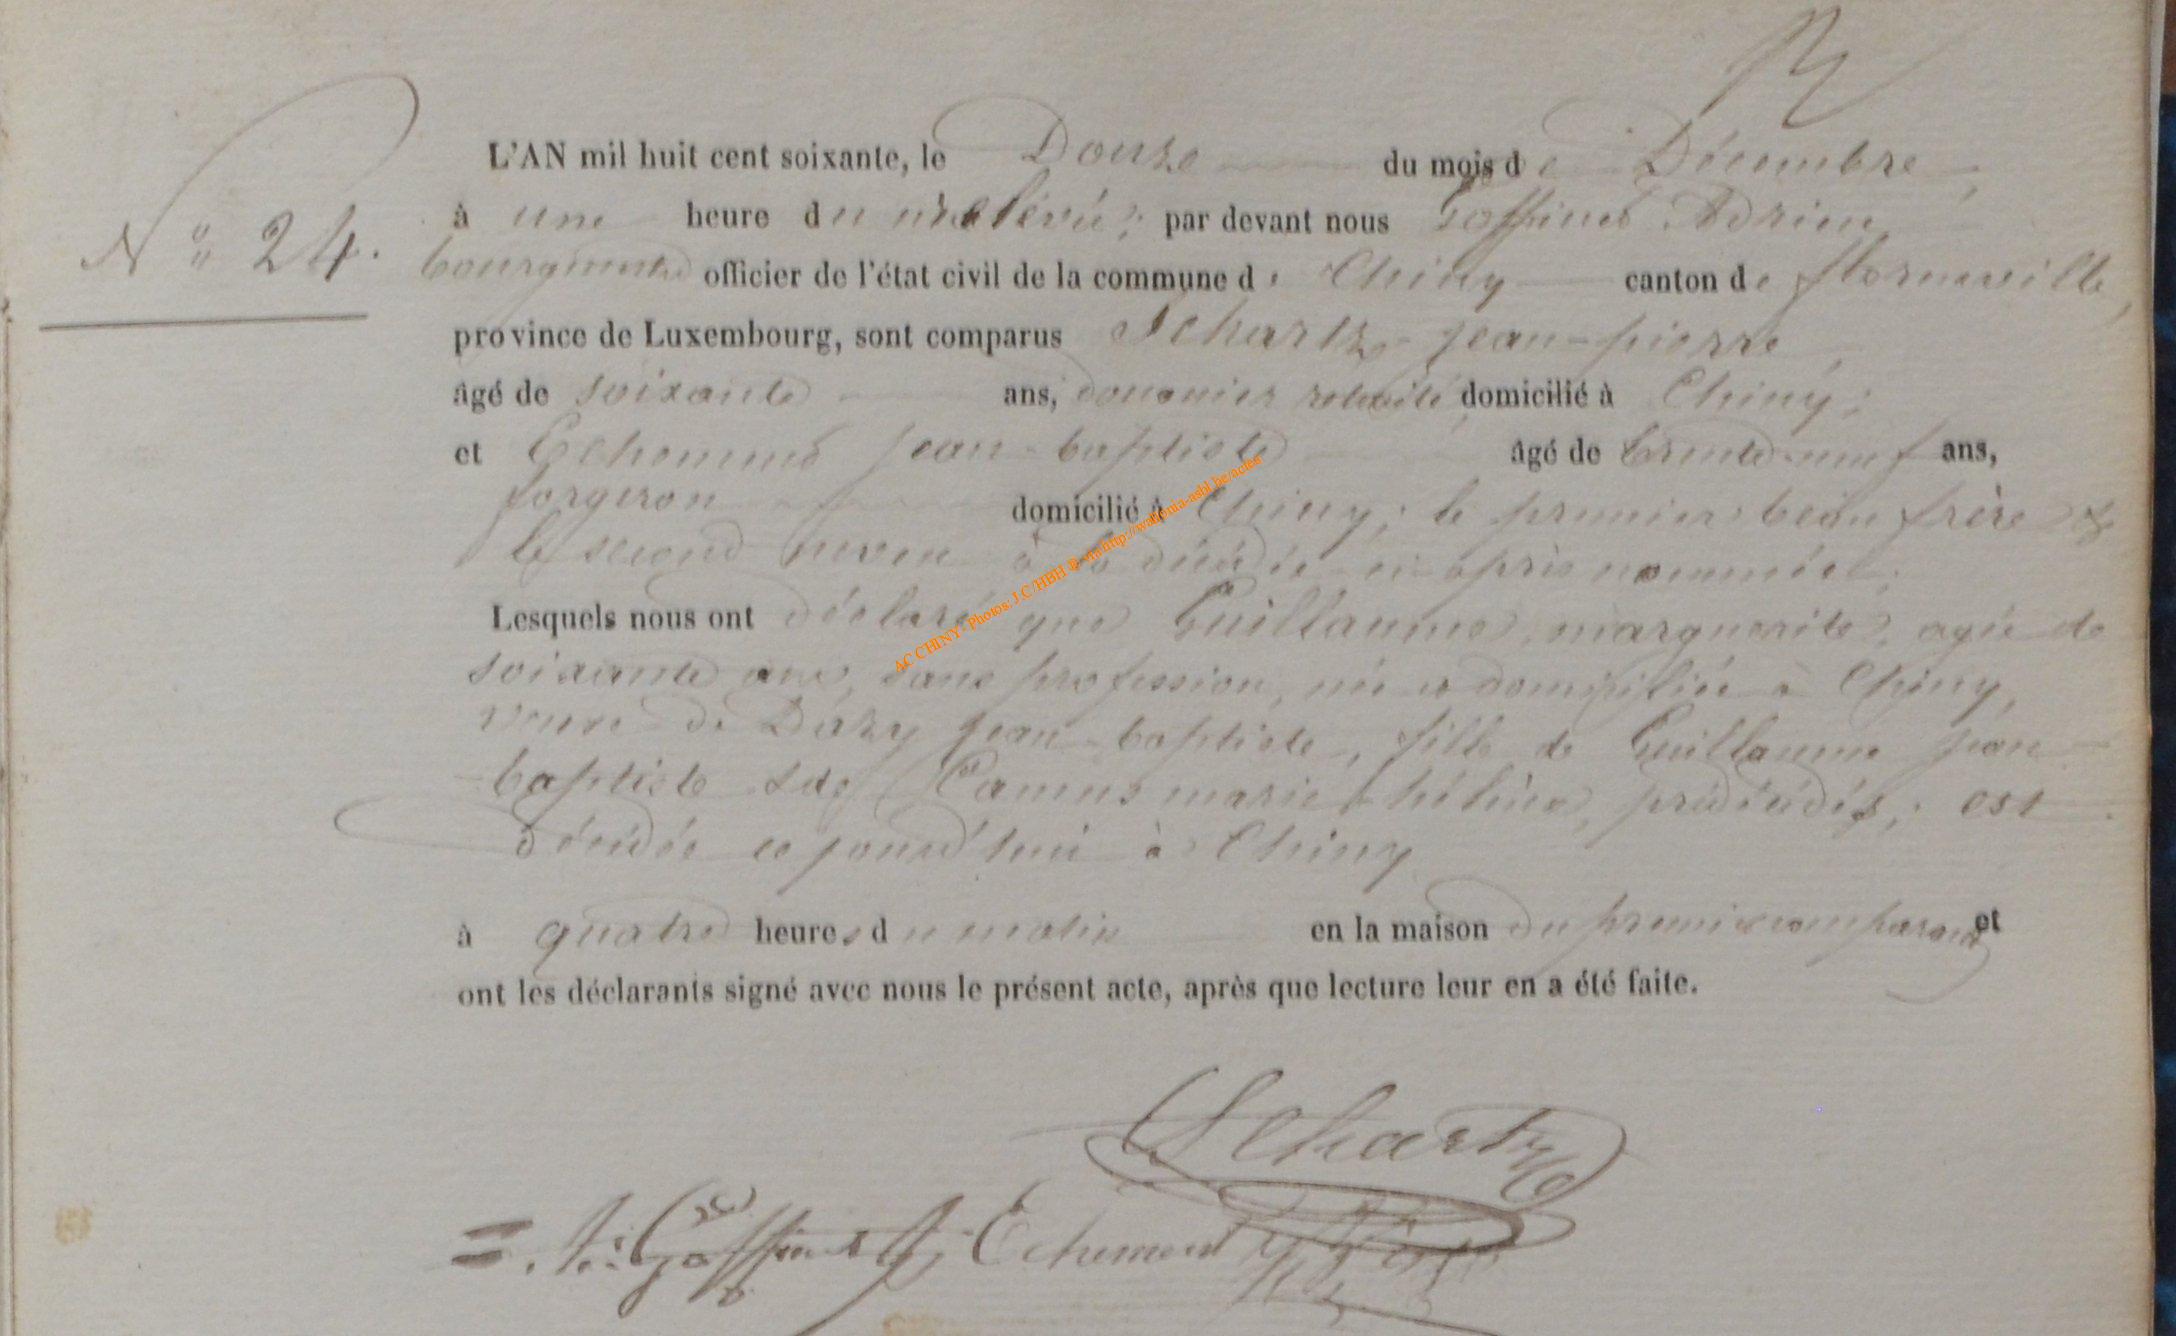 L'AN mil huit cent soixante, le Douze du mois de Décembre,
N° 24.
à une heure du relevée; par devant nous Goffinet Adrien
bourgmestre officier de l'état civil de la commune de Chiny canton de florenville,
province de Luxembourg, sont comparus Schartz jean-pierre,
âgé de soixante ans, douanier retraité, domicilié à Chiny;
et Echement jean-baptiste âgé de trente-neuf ans,
forgeron domicilié à Chiny; le premier beau frère &
le second neveu à la décédée ci-après nommée;
Lesquels nous ont déclaré que Guillaume, marguerite, agée de
soixante ans, sans profession, née et domiciliée à Chiny,
veuve de Dazy jean-baptiste, fille de Guillaume jean
-baptiste & de Camus marie-hélène, prédécédés; est
décédée ce jourd'hui à Chiny
à quatre heures du matin en la maison du premier comparant et
ont les déclarants signé avec nous le présent acte, après que lecture leur en a été faite.
Schartz
A: Goffinet Echement
AC CHINY - Photos: J.C/HBH @ via http://wallonia-asbl.be/actes